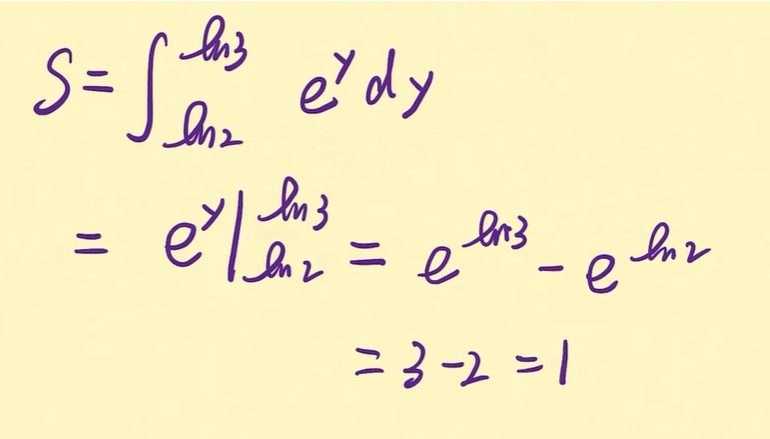 S = ∫_{ln2}^{ln3} e^y dy
= e^y |_{ln2}^{ln3} = e^{ln3} - e^{ln2}
= 3 - 2 = 1